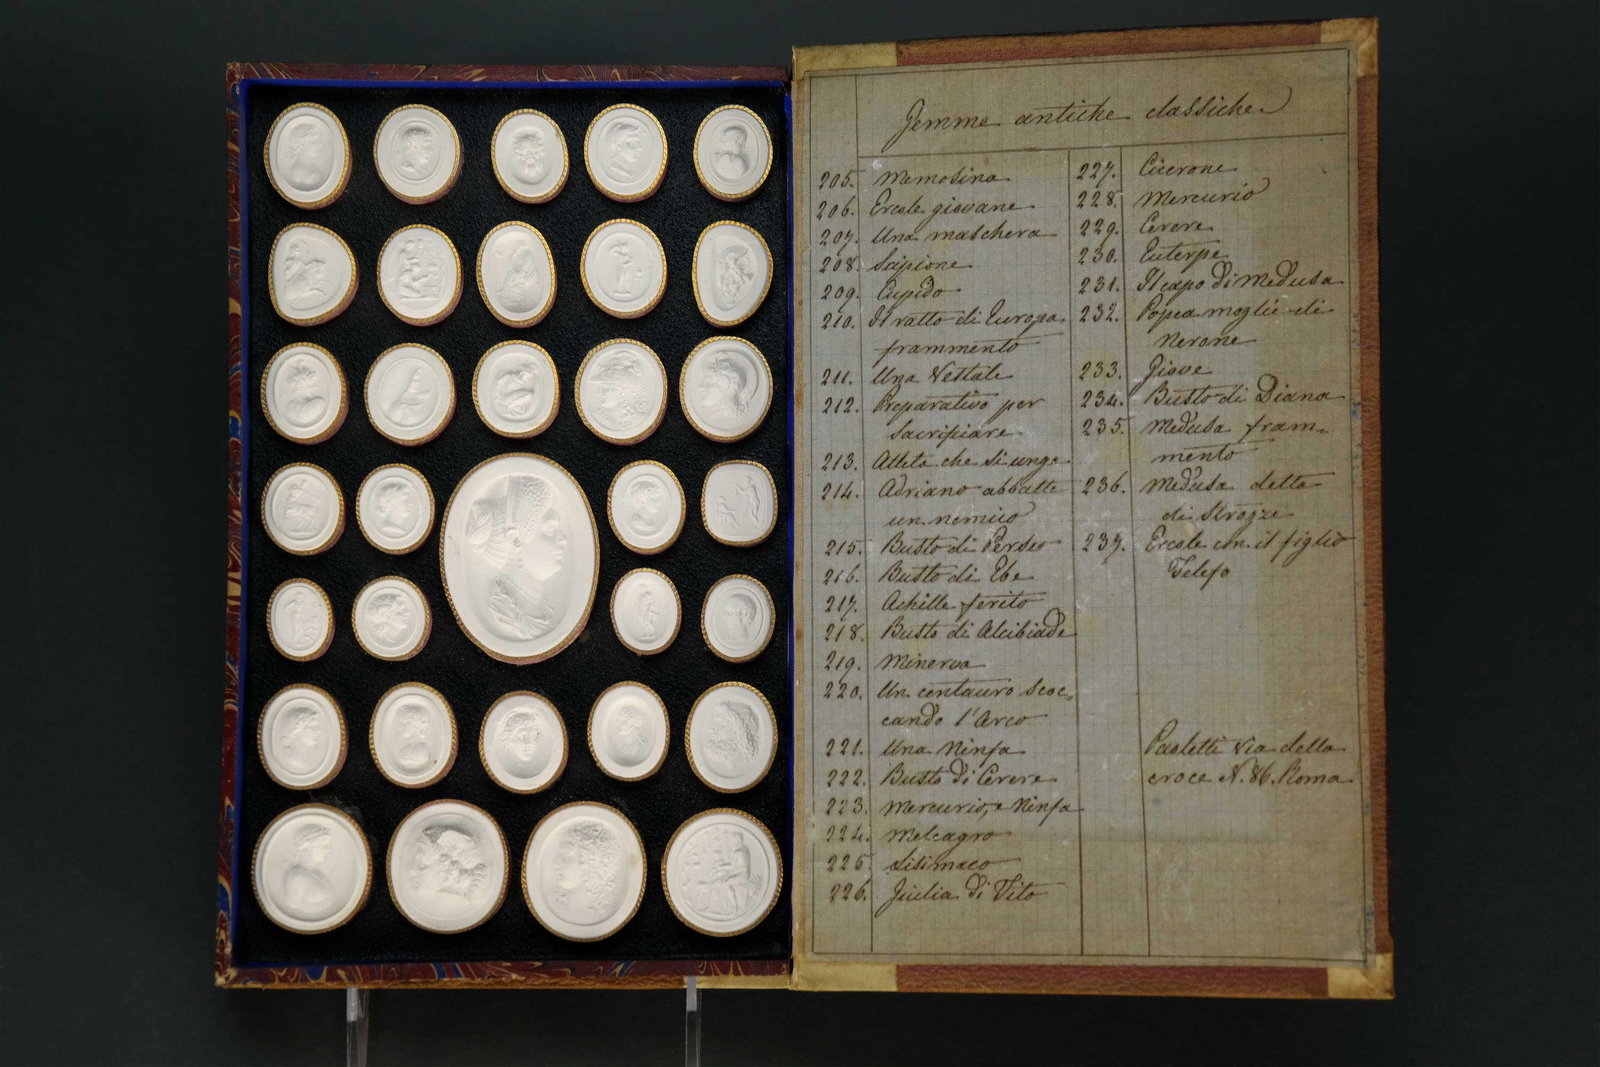 Gemme antiche classiche
205. Memosina
206. Ercole giovane
207. Una maschera
208. Scipione
209. Cupido
210. Il ratto di Europa
frammento
211. Una Vestale
212. Preparativo per
sacrifiare
213. Atleta che si unge
214. Adriano abbatte
un nemico
215. Busto di Perseo
216. Busto di Ebe
217. Achille ferito
218. Busto di Alcibiade
219. Minerva
220. Un centauro scoc=
cando l'Arco
221. Una Ninfa
222. Busto di Cerere
223. Mercurio, e Ninfa
224. Meleagro
225. Lisimaco
226. Giulia di Tito
227. Cicerone
228. Mercurio
229. Cerere
230. Euterpe
231. Il capo di Medusa
232. Popea moglie di
Nerone
233. Giove
234. Busto di Diana
235. Medusa fram=
mento
236. Medusa detta
di Strozzi
237. Ercole con il figlio
Telefo
Paoletti Via della
croce N. 86. Roma